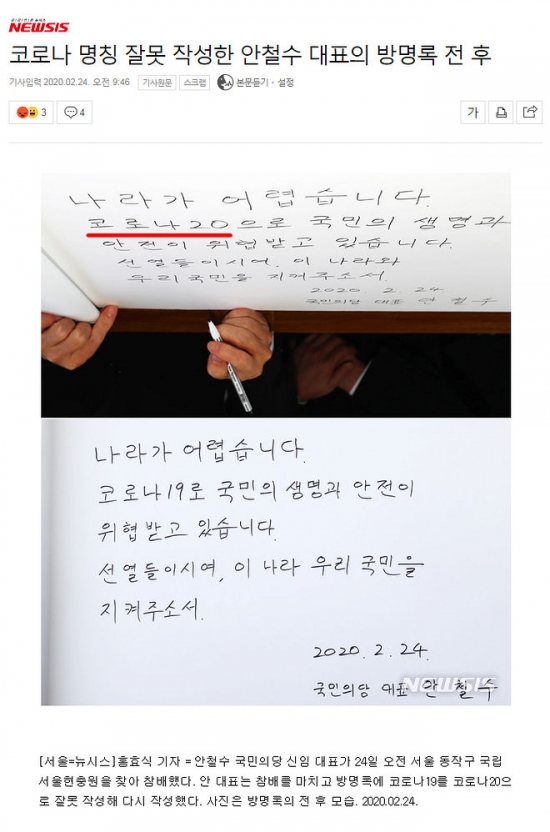 NEWSIS
코로나 명칭 잘못 작성한 안철수 대표의 방명록 전 후
기사입력 2020.02.24. 오전 9:46 기사원문 스크랩 본문듣기 · 설정
3 4 가
나라가 어렵습니다.
코로나20으로 국민의 생명과
안전이 위협받고 있습니다.
선열들이시여, 이 나라와
우리국민을 지켜주소서.
2020. 2. 24
국민의당 대표 안철수
나라가 어렵습니다.
코로나19로 국민의 생명과 안전이
위협받고 있습니다.
선열들이시여, 이 나라 우리 국민을
지켜주소서.
2020. 2. 24.
NEWSIS
국민의당 대표 안철수
[서울=뉴시스]홍효식 기자 = 안철수 국민의당 신임 대표가 24일 오전 서울 동작구 국립
서울현충원을 찾아 참배했다. 안 대표는 참배를 마치고 방명록에 코로나19를 코로나20으
로 잘못 작성해 다시 작성했다. 사진은 방명록의 전 후 모습. 2020.02.24.